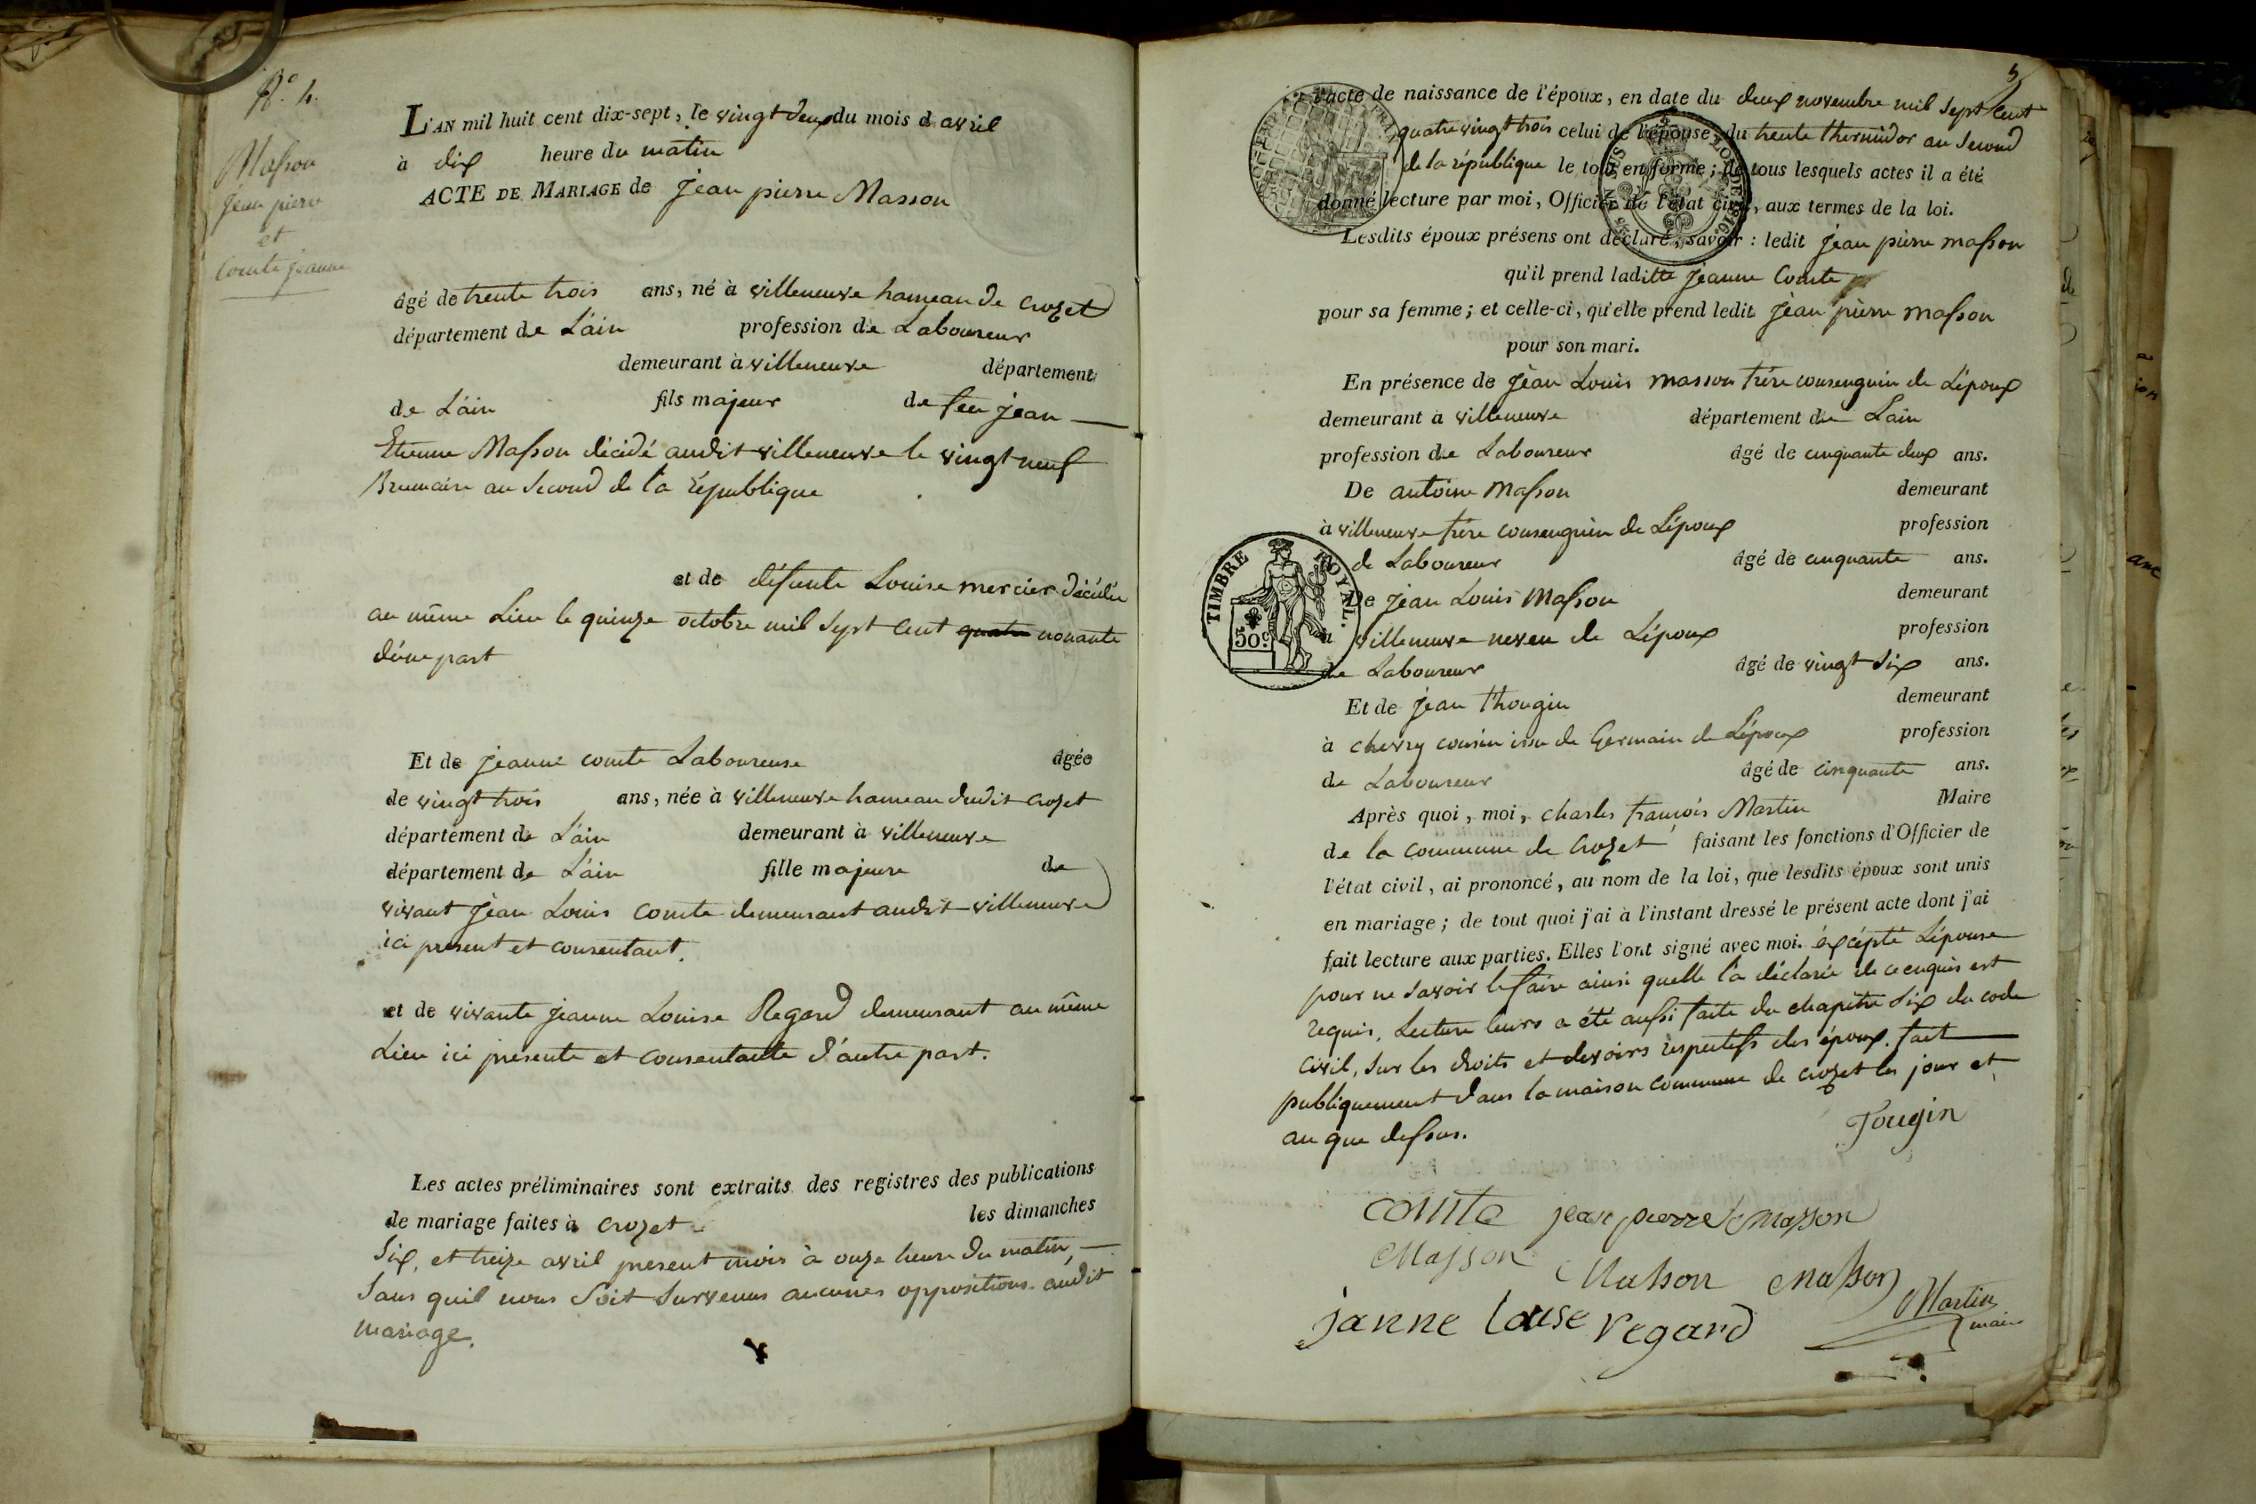 N.o 4.
Masson
Jean pierre
et
Comte jeanne
L'AN mil huit cent dix-sept, le vingt deux du mois d avril
à dix heure du matin
ACTE DE MARIAGE de jean pierre Masson
âgé de trente trois ans, né à villeneuve hameau de crozet
département de L'ain profession de Laboureur
demeurant à villeneuve département
de L'ain fils majeur de feu jean
Etienne Masson décédé audit villeneuve le vingt neuf
Brumaire an second de la république
et de défunte Louise mercier décédée
au même Lieu le quinze octobre mil sept cent quatre nonante
d'une part
Et de jeanne comte Laboureuse âgée
de vingt trois ans, née à villeneuve hameau dudit crozet
département de L'ain demeurant à villeneuve
département de L'ain fille majeure de
vivant jean Louis comte demeurant audit villeneuve
ici present et consentant.
et de vivante jeanne Louise Regard demeurant au même
Lieu ici presente et consentante d'autre part.
Les actes préliminaires sont extraits des registres des publications
de mariage faites à crozet les dimanches
six, et treize avril present mois à onze heure du matin,
sans quil nous soit survenus aucunes oppositions audit
mariage.
5
l'acte de naissance de l'époux, en date du deux novembre mil sept cent
quatre vingt trois celui de l'épouse du trente thermidor an second
de la république le tout en forme; de tous lesquels actes il a été
donné lecture par moi, Officier de l'état civil, aux termes de la loi.
Lesdits époux présens ont déclaré, savoir : ledit jean pierre masson
qu'il prend laditte jeanne Comte
pour sa femme; et celle-ci, qu'elle prend ledit jean pierre masson
pour son mari.
En présence de jean Louis masson frère consenguin de L'époux
demeurant à villeneuve département de L'ain
profession de Laboureur âgé de cinquante deux ans.
De antoine Masson demeurant
à villeneuve frère consenguin de L'époux profession
de Laboureur âgé de cinquante ans.
TIMBRE ROYAL.
50c
De jean Louis Masson demeurant
à villeneuve neveu de L'époux profession
de Laboureur âgé de vingt six ans.
Et de jean thougin demeurant
à chevry cousin issu de Germain de L'époux profession
de Laboureur âgé de cinquante ans.
Après quoi, moi, charles françois Martin Maire
de la commune de Crozet faisant les fonctions d'Officier de
l'état civil, ai prononcé, au nom de la loi, que lesdits époux sont unis
en mariage; de tout quoi j'ai à l'instant dressé le présent acte dont j'ai
fait lecture aux parties. Elles l'ont signé avec moi. éxcépté L'épouse
pour ne savoir le faire ainsi quelle la déclarée de ce enquis est
requis, Lecture leurs a été aussi faite du chapitre six du code
civil, sur les droits et devoirs respectifs des époux. fait
publiquement dans la maison commune de crozet les jour et
an que dessus.
Tougin
comte jean pierre masson
Masson Masson Masson
Martin
maire
janne louise regard